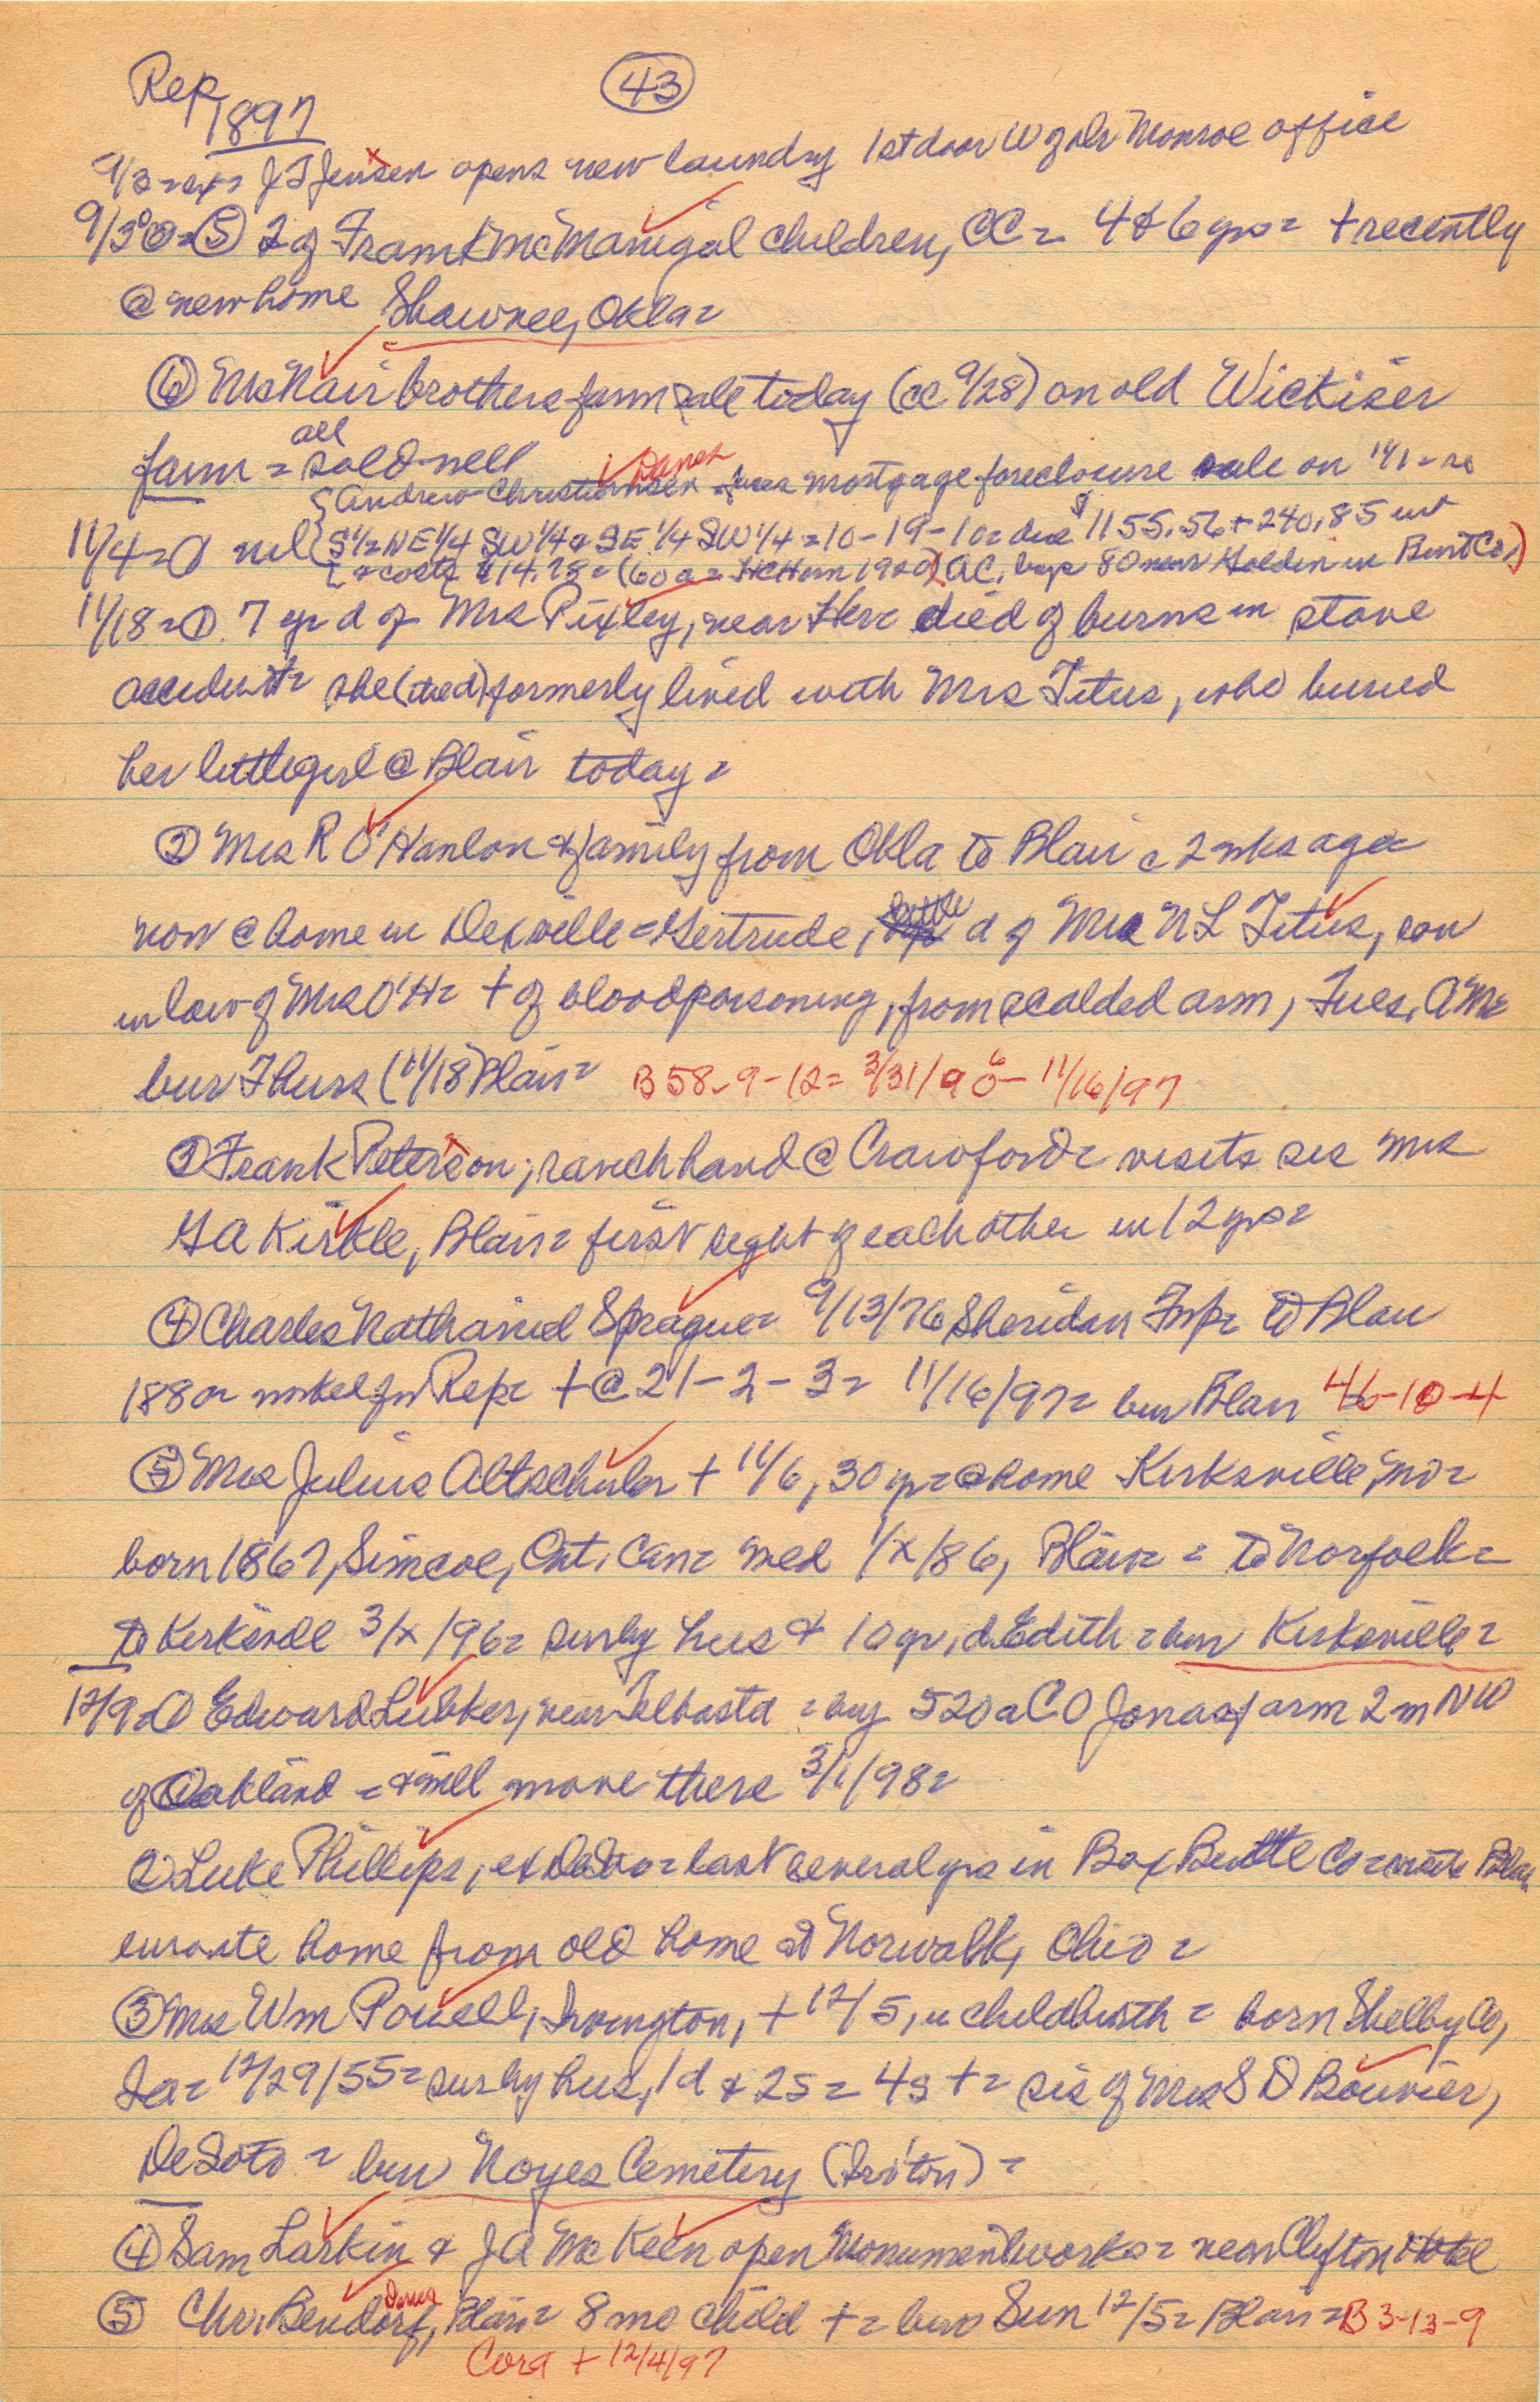 Rep 43
1897
J T Jensen opens new laundry 1st door W of Dr Monroe office
9/30 = ⑤ 2 of Frank McManigal children, CC = 4 & 6 yrs = + recently
@ new home Shawnee, Okla =
⑥ McNair brothers farm sale today (cc 9/28) on old Wickiser
farm = all sold well
{Andrew Christiansen Danes mortgage foreclosure sale on 11/1 =
11/4 = ① {S 1/2 NE 1/4 SW 1/4 & SE 1/4 SW 1/4 = 10-19-10 = due $1155.56 + 240.85 int
& costs $14.78 = (60 a = 1920) AC, buys 80 near Holden in Burt Co)
11/18 = ① 7 yr d of Mrs Pixley, near Her died of burns in stove
accident = she formerly lived with Mrs Titus, who buried
her little girl @ Blair today =
② Mrs R O'Hanlon & family from Okla to Blair c 2 wks ago =
now @ home in Dexville = Gertrude, little d of Mrs N L Titus, son
in law of Mrs O'H = + of bloodpoisoning, from scalded arm, Tues. AM =
bur Thurs (11/18) Blair = B 58-9-12 = 3/31/90 - 11/16/97
③ Frank Peterson, ranch hand @ Crawford = visits sis Mrs
G A Kirkle, Blair = first sight of each other in 12 yrs =
④ Charles Nathaniel Sprague = 9/13/76 Sheridan Twp = to Blair
1880 = worked for Rep = + @ 21-2-3 = 11/16/97 = bur Blair 46-10-4
⑤ Mrs Julius Altschuler + 11/6, 30 yr = @ home Kirksville, Mo =
born 1867, Simcoe, Ont, Can = wed 1/x/86, Blair = = to Norfolk =
to Kirksville 3/x/96 = sur by hus & 10 yr, d. Edith = bur Kirksville =
12/9 = ① Edward Lubker, near Telbasta = buy 520 a C O Jonas farm 2 m NW
of Oakland = & will move there 3/1/98 =
② Luke Phillips, ex DeSoto = last several yrs in Box Butte Co = Blair
enroute home from old home at Norwalk, Ohio =
③ Mrs Wm Powell, Irvington, + 12/5, in childbirth = born Shelby Co,
Ia = 12/29/55 = sur by hus, 1 d & 2 s = 4 s + = sis of Mrs S D Bouvier,
DeSoto = bur Noyes Cemetery (Irv'ton) =
④ Sam Larkin & J A McKeen open Monument works = near Clifton Hotel
⑤ Chr. Bendorf, Danes Blair = 8 mo child + = bur Sun 12/5 = Blair = B 3-13-9
Cora + 12/4/97